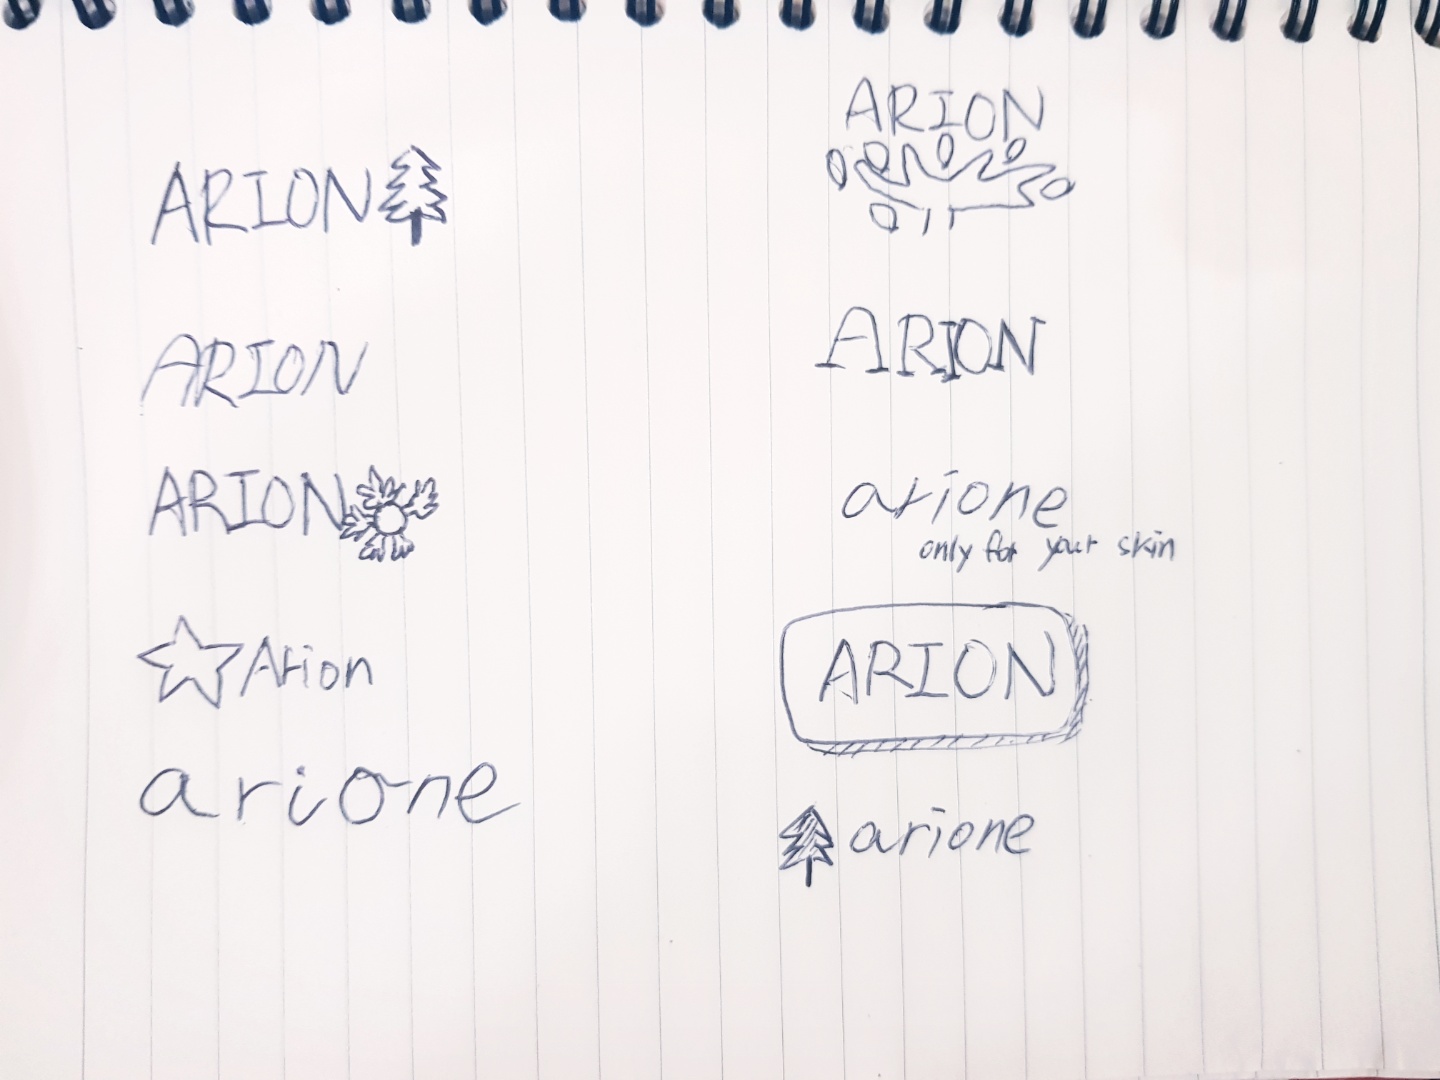 ARION
ARION
ARION
Arion
arione
ARION
ARION
arione
only for your skin
ARION
arione